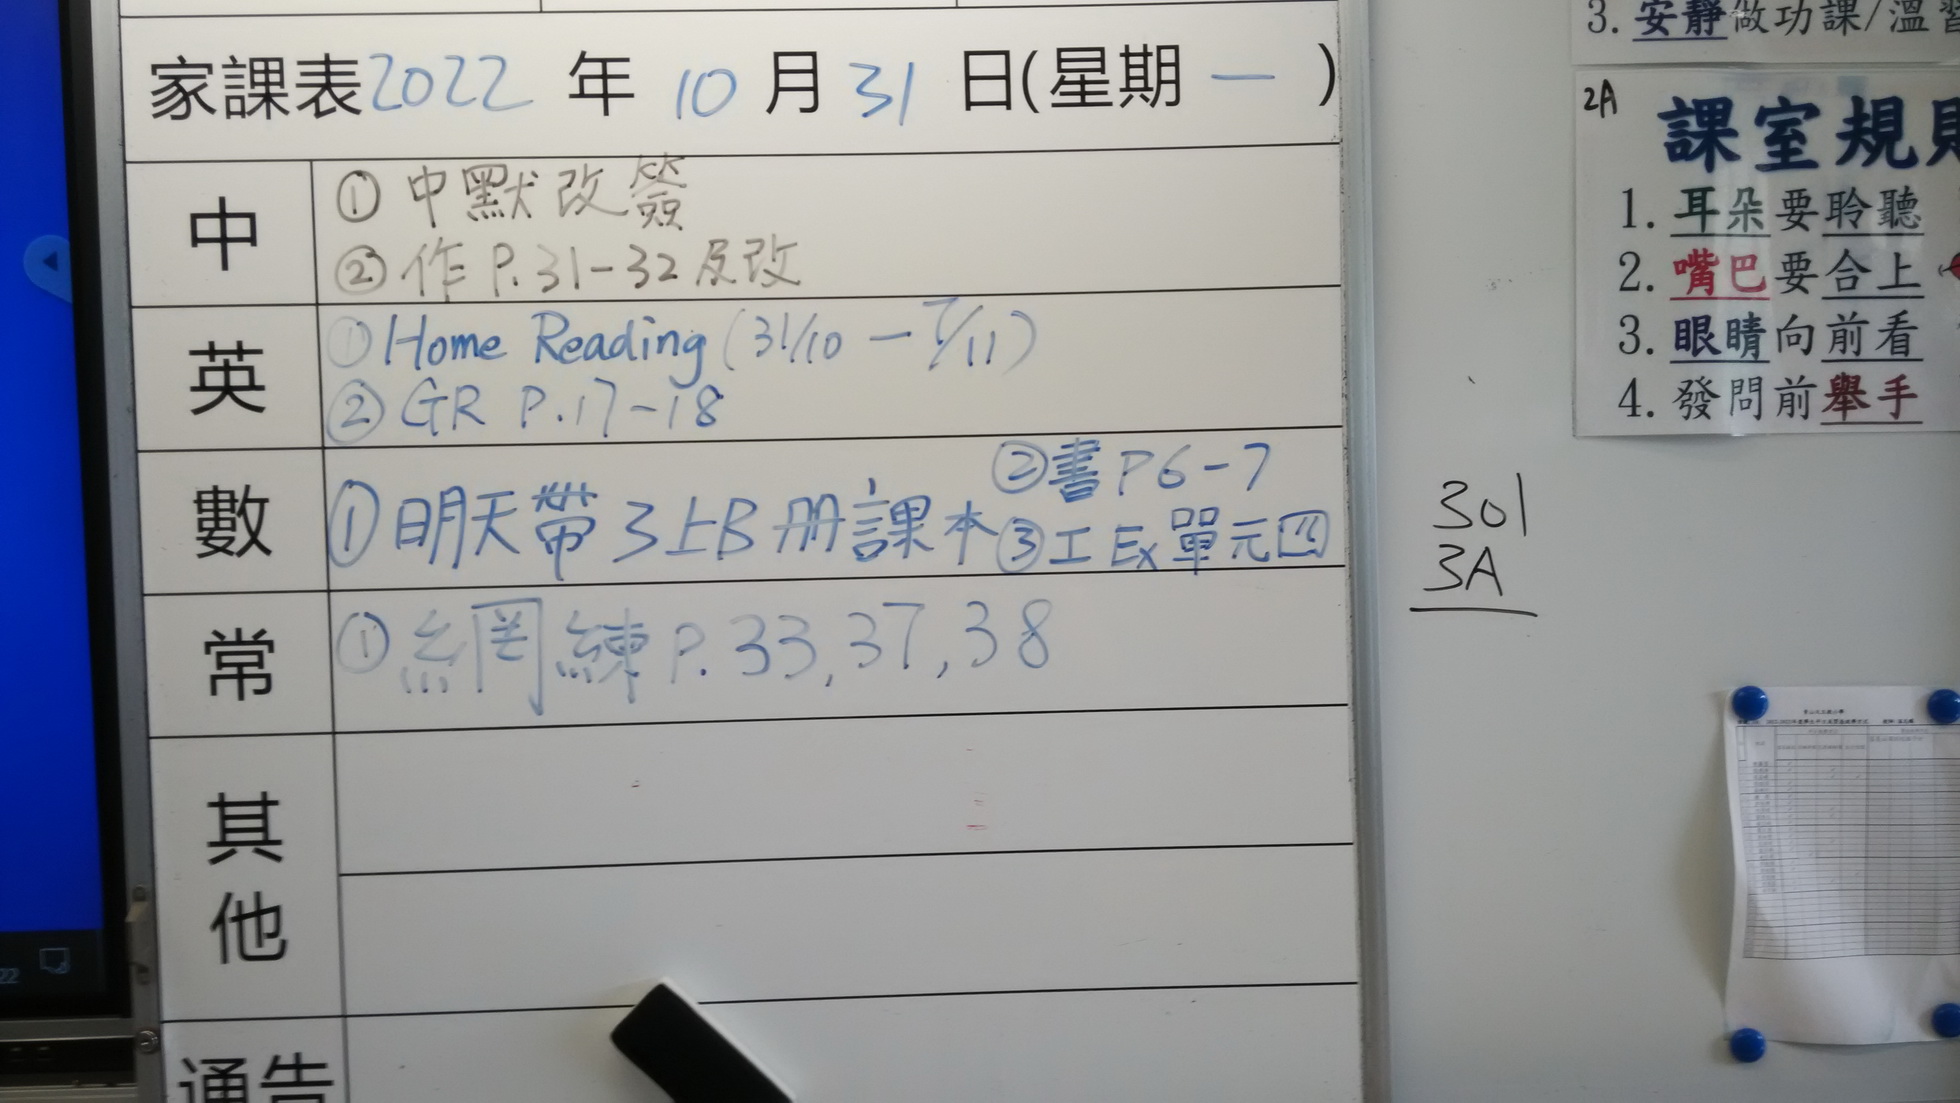 家課表2022年10月31日(星期一)
中
①中默改簽
②作P.31-32及改
英
①Home Reading (31/10 - 7/11)
②GR P.17-18
數
①明天帶3上B册課本
②書P6-7
③工Ex單元四
常
①網練P.33,37,38
其他
通告
3.安靜做功課/溫習
2A
課室規則
1.耳朵要聆聽
2.嘴巴要合上
3.眼睛向前看
4.發問前舉手
301
3A
22